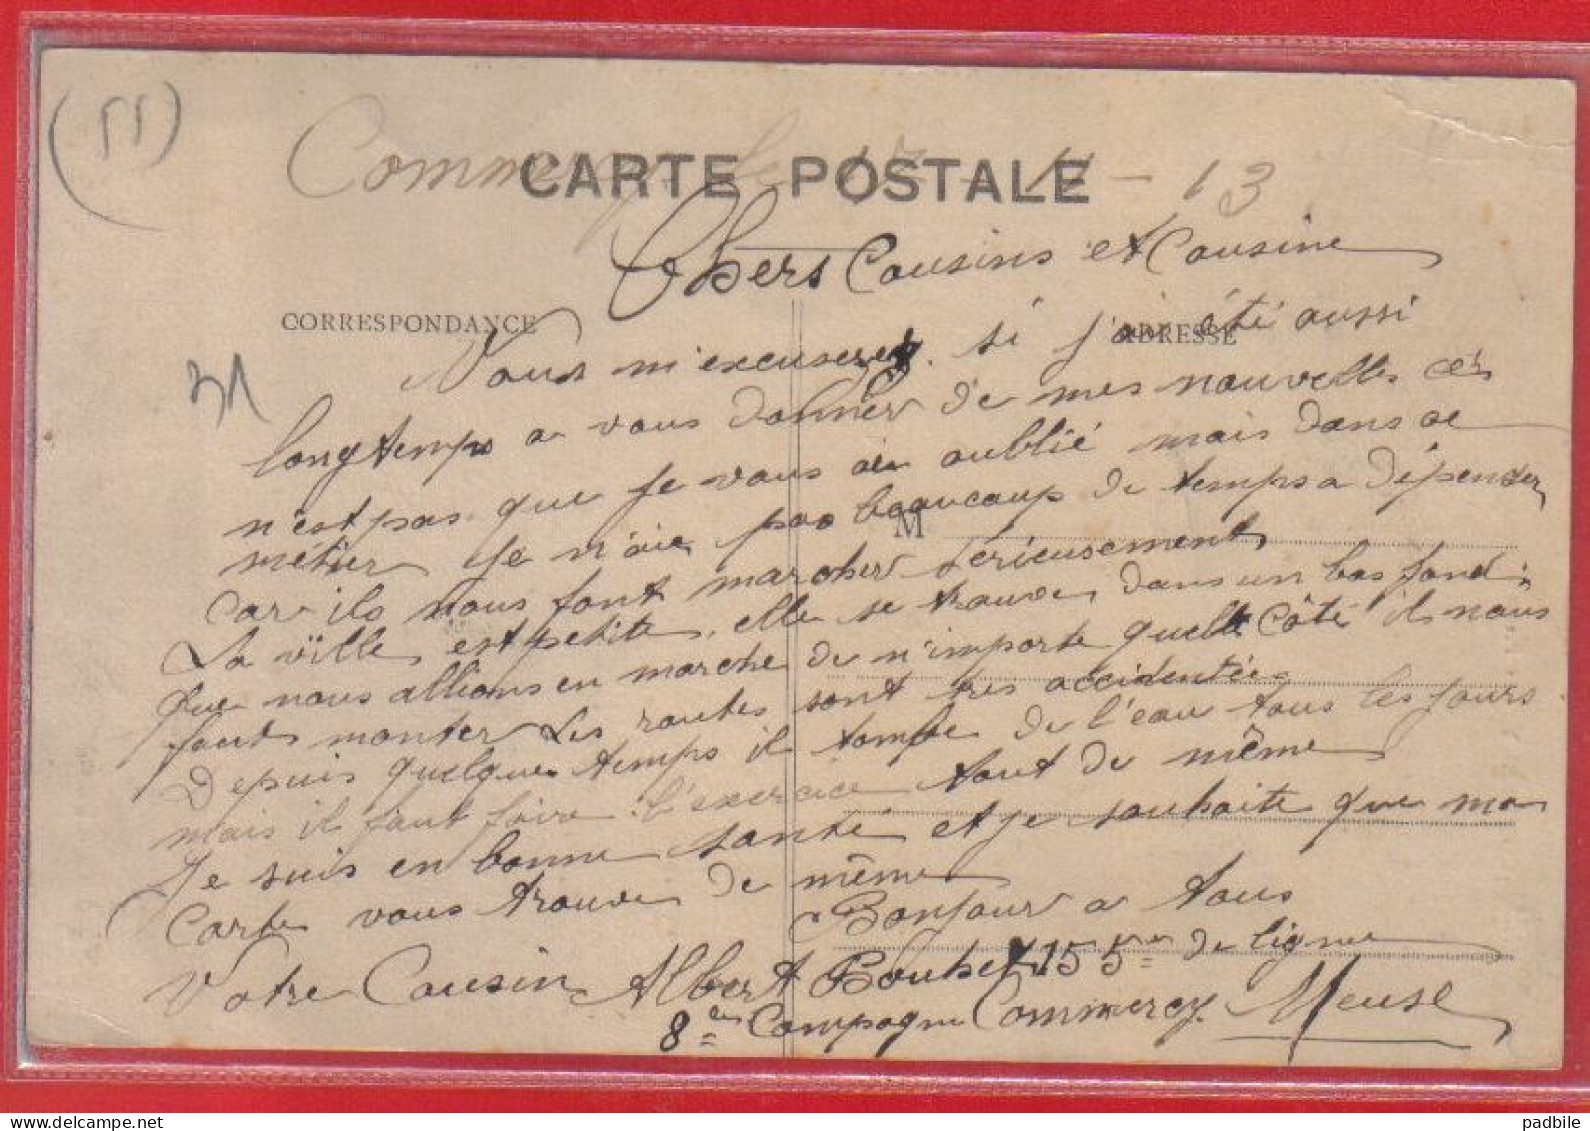 (55)
Commercy le 17 - 11 - 13
CARTE POSTALE
Chers Cousins et Cousine
CORRESPONDANCE
ADRESSE
31
Vous m'excuserez si j'ai été aussi
longtemps a vous donner de mes nouvelles ces
n'est pas que je vous ai oublié mais dans ce
métier je n'aie pas beaucoup de temps a dépenser
M
car ils nous font marcher sérieusement
La ville est petite, elle se trouve dans un bas fond.
que nous allions en marche de n'importe quelle côté il nous
faut monter Les routes sont très accidentée
Depuis quelque temps il tombe de l'eau tous les jours
mais il faut faire l'exercice tout de même
Je suis en bonne santé et je souhaite que ma
Carte vous trouve de même
Bonjour a tous
Votre Cousin Albert Bouhet 155me de ligne
8e Compagnie Commercy Meuse
padbile